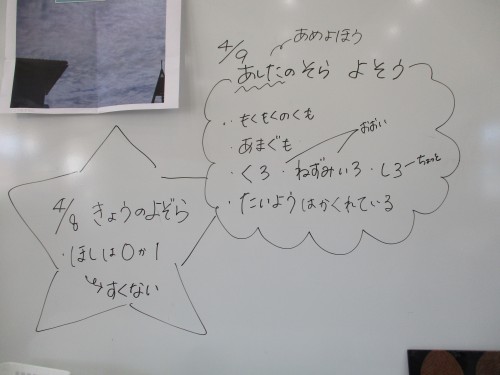 4/9
あめよほう
あしたのそら よそう
・もくもくのくも
・あまぐも
おおい
・くろ・ねずみいろ・しろーちょっと
・たいようはかくれている
4/8 きょうのよぞら
・ほしは0か1
→すくない